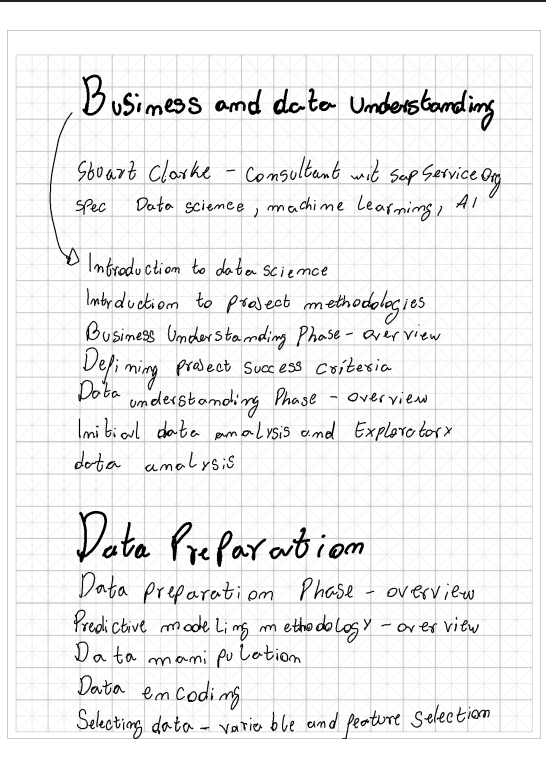 Business and data Understanding
Stuart Clarke - Consultant wit Sap Service Org
spec Data science, machine Learning, AI
Introduction to data science
Intrduction to project methodologies
Business Understanding Phase - overview
Defining project success criteria
Data understanding Phase - overview
Initial data analysis and Exploratory
data analysis
Data Preparation
Data preparation Phase - overview
Predictive modeling methodology - overview
Data manipulation
Data encoding
Selecting data - variable and feature selection